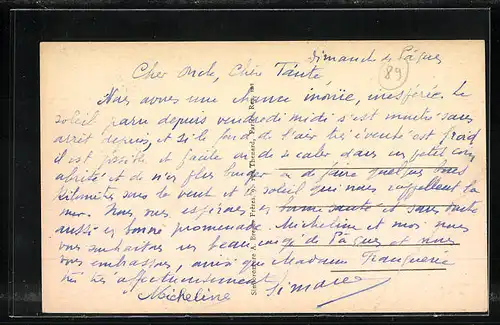 Dimanche de Pâques
89
Cher Oncle, Chère Tante,
Nous avons une chance inouïe, inespérée. Le
soleil paru depuis vendredi midi s'est montré sans
arrêt depuis, et si le fond de l'air très éventé est froid
il est possible et facile de se caler dans un petit coin
abrité et de n'en plus bouger ou de faire quelques
kilomètres sous le vent et le soleil qui nous rappellent la
mer. Nous vous espérons en bonne santé et sans doute
aussi en bonne promenade. Micheline et moi nous
vous souhaitons un beau de Pâques et nous
vous embrassons, ainsi que Madame
très très affectueusement
Micheline Simone